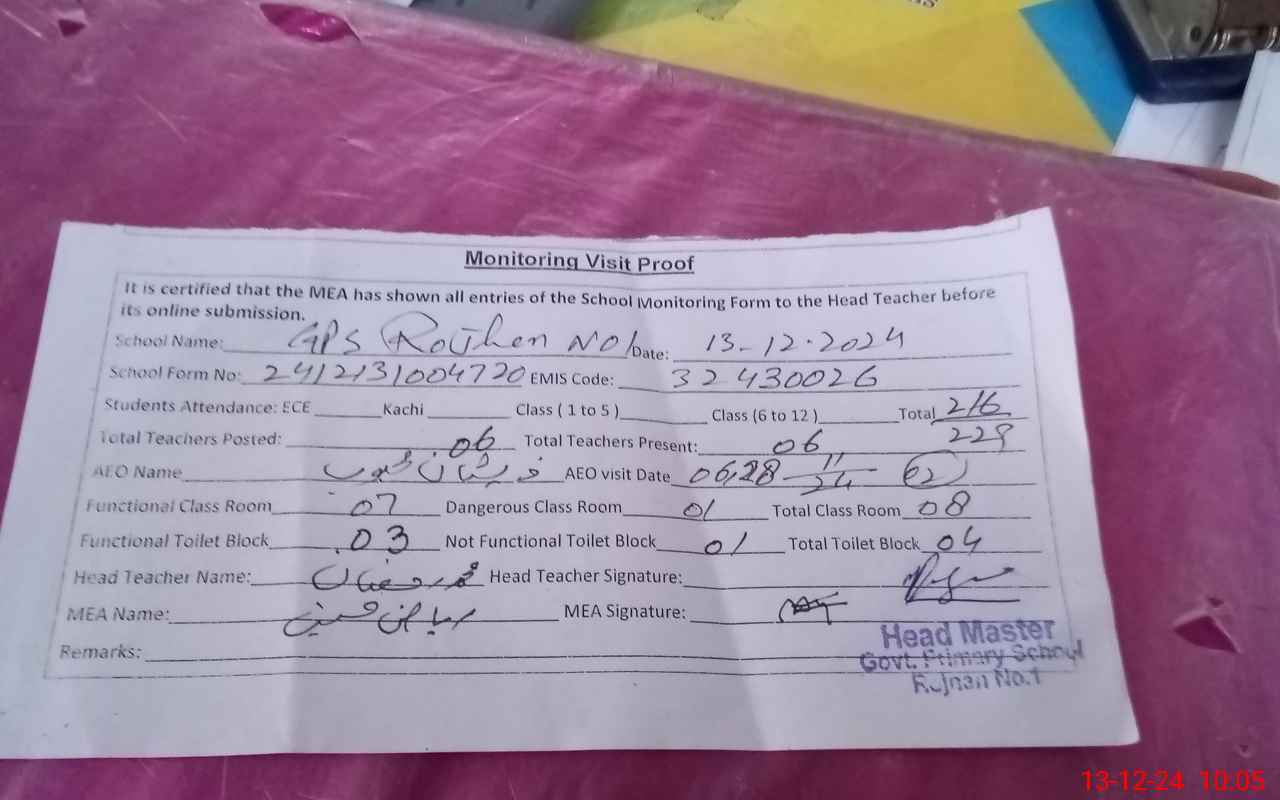 Monitoring Visit Proof
It is certified that the MEA has shown all entries of the School Monitoring Form to the Head Teacher before
its online submission.
School Name: GPS Rojhan NO1 Date: 13-12-2024
School Form No: 2412131004720 EMIS Code: 32430026
Students Attendance: ECE Kachi Class ( 1 to 5 ) Class (6 to 12 ) Total 216
229
Total Teachers Posted: 06 Total Teachers Present: 06
AEO Name AEO visit Date 06,28 11/24 02
Functional Class Room 07 Dangerous Class Room 01 Total Class Room 08
Functional Toilet Block 03 Not Functional Toilet Block 01 Total Toilet Block 04
Head Teacher Name: محمد رمضان Head Teacher Signature:
MEA Name: ریاض حسین MEA Signature:
Remarks:
Head Master
Govt. Primary School
Rojhan No.1
13-12-24 10:05